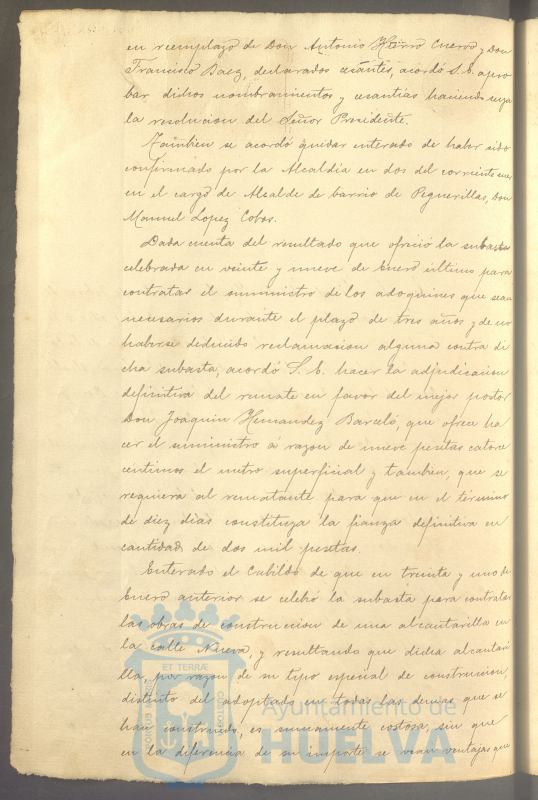 en reemplazo de Don Antonio Hierro Cuervo y Don
Francisco Baez, declarados cesantes, acordó S.E. apro
bar dichos nombramientos y cesantias haciendo suya
la resolucion del Señor Presidente.
Tambien se acordó quedar enterado de haber sido
confirmado por la Alcaldía en dos del corriente mes
en el cargo de Alcalde de barrio de Peguerillas, Don
Manuel Lopez Cobos.
Dada cuenta del resultado que ofreció la subasta
celebrada en veinte y nueve de Enero último para
contratar el suministro de los adoquines que sean
necesarios durante el plazo de tres años y de no
haberse deducido reclamacion alguna contra di
cha subasta, acordó S.E. hacer la adjudicacion
definitiva del remate en favor del mejor postor
Don Joaquin Hernandez Barceló, que ofrece ha
cer el suministro á razon de nueve pesetas catorce
centimos el metro superficial y tambien, que se
requiera al rematante para que en el término
de diez dias constituya la fianza definitiva en
cantidad de dos mil pesetas.
Enterado el Cabildo de que en treinta y uno de
Enero anterior se celebró la subasta para contratar
las obras de construccion de una alcantarilla en
la calle Nueva, y resultando que dicha alcantari
lla, por razon de su tipo especial de construccion,
distinto del adoptado en todas las demas que se
han construido, es sumamente costosa, sin que
en la diferencia de su importe se vean ventajas que
ET TERRÆ
Ayuntamiento de
HUELVA